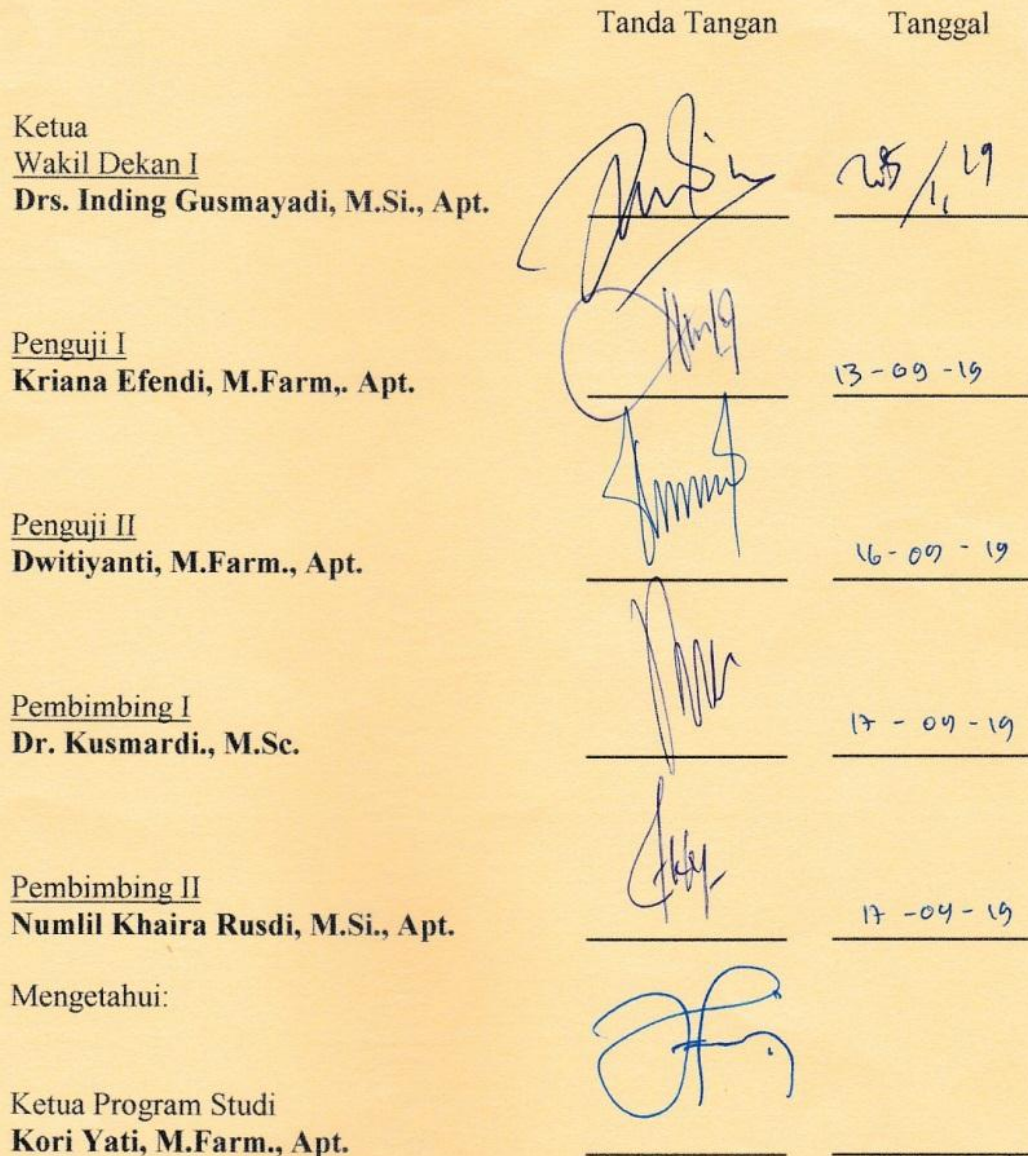 Tanda Tangan Tanggal
Ketua
Wakil Dekan I
Drs. Inding Gusmayadi, M.Si., Apt.
Penguji I
Kriana Efendi, M.Farm,. Apt. 13-09-19
Penguji II
Dwitiyanti, M.Farm., Apt. 16-09-19
Pembimbing I
Dr. Kusmardi., M.Sc. 17-09-19
Pembimbing II
Numlil Khaira Rusdi, M.Si., Apt. 17-09-19
Mengetahui:
Ketua Program Studi
Kori Yati, M.Farm., Apt.